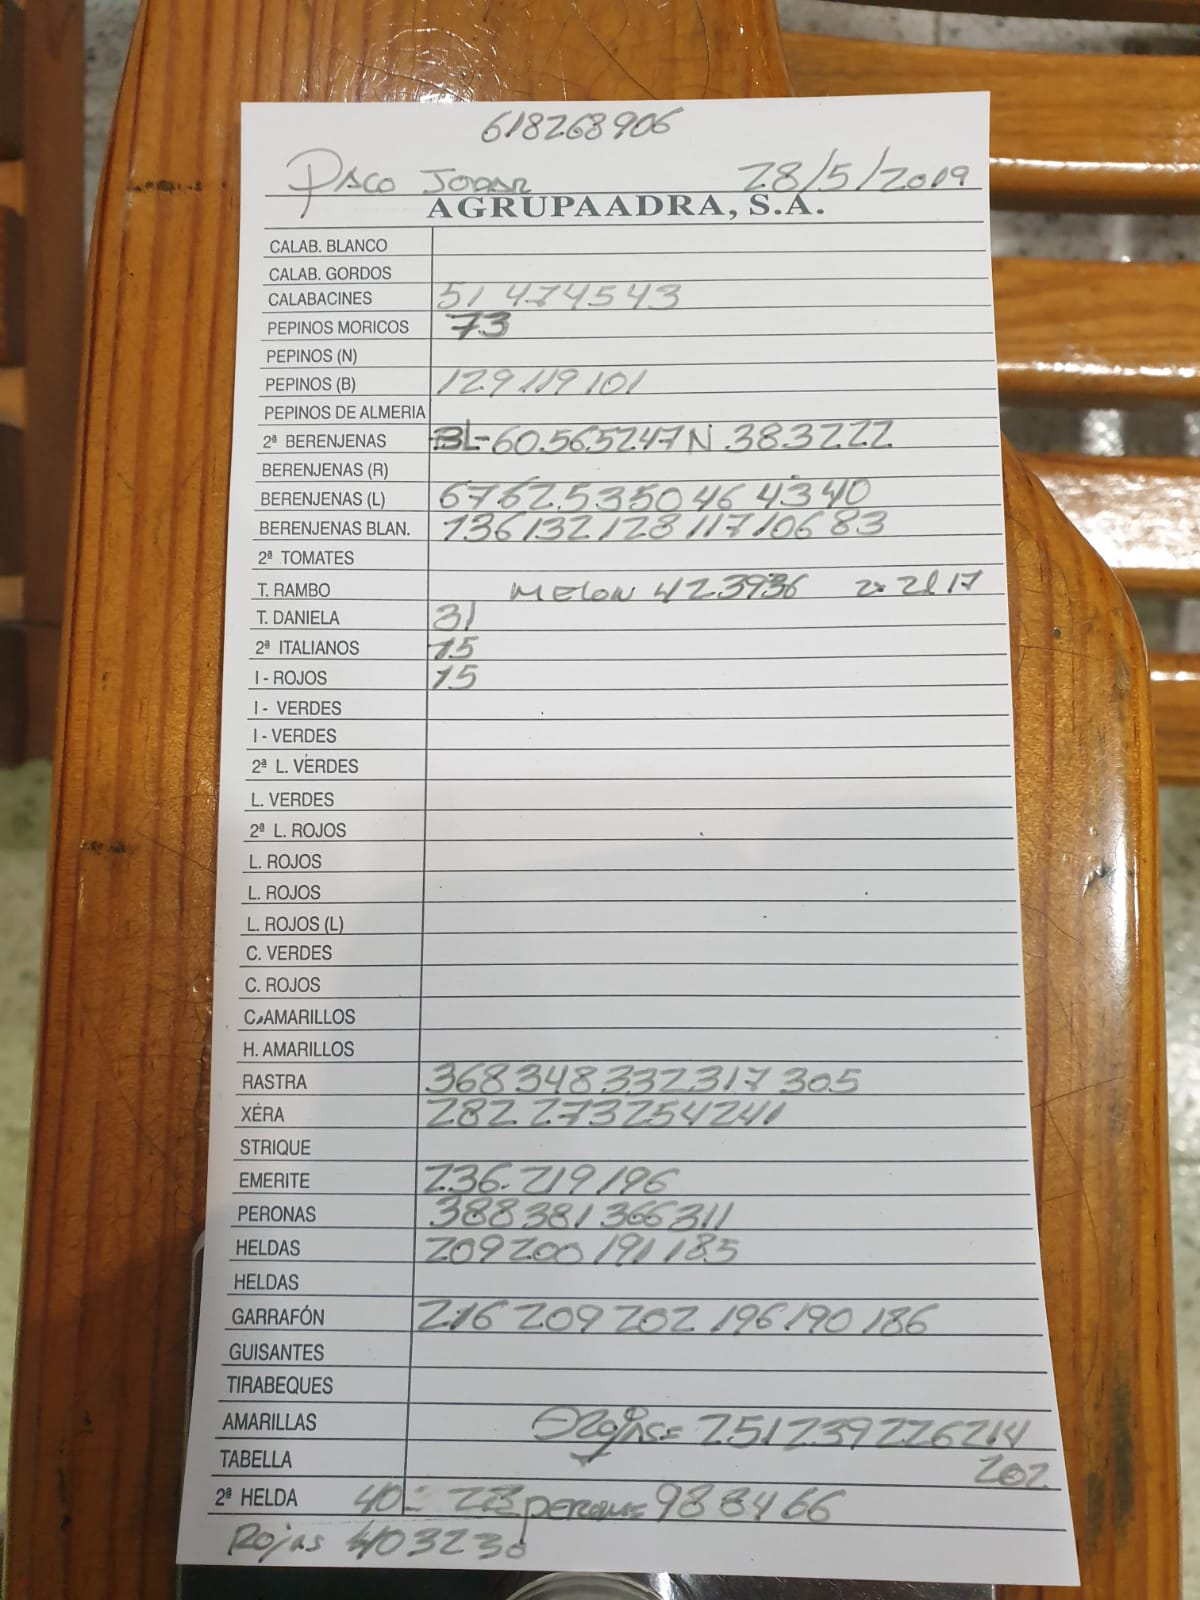 618268906
Paco Jodar 28/5/2019
AGRUPAADRA, S.A.
CALAB. BLANCO
CALAB. GORDOS
CALABACINES 51 474543
PEPINOS MORICOS 73
PEPINOS (N)
PEPINOS (B) 129 119 101
PEPINOS DE ALMERIA
2ª BERENJENAS BL-60.565247 N 383222
BERENJENAS (R)
BERENJENAS (L) 6762535046 4340
BERENJENAS BLAN. 136 132 128 117 106 83
2ª TOMATES
T. RAMBO MELON 423936 2ª 2117
T. DANIELA 31
2ª ITALIANOS 15
I - ROJOS 15
I - VERDES
I - VERDES
2ª L. VERDES
L. VERDES
2ª L. ROJOS
L. ROJOS
L. ROJOS
L. ROJOS (L)
C. VERDES
C. ROJOS
C. AMARILLOS
H. AMARILLOS
RASTRA 368 348 332 317 305
XÉRA 282 273 254 241
STRIQUE
EMERITE 236 219 196
PERONAS 388 381 366 311
HELDAS 209 200 191 185
HELDAS
GARRAFÓN 216 209 202 196 190 186
GUISANTES
TIRABEQUES
AMARILLAS Rojas= 251 239 226 214
TABELLA 202
2ª HELDA 40- 223 perona= 988466
Rojas 403230